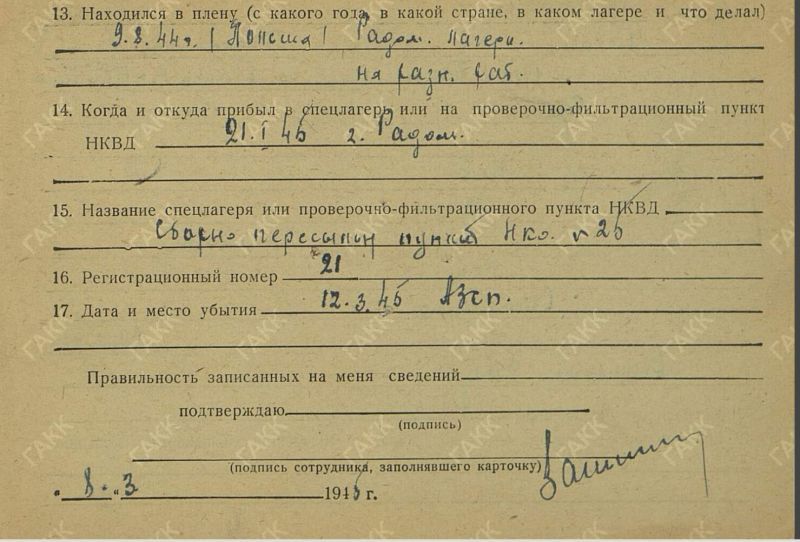 13. Находился в плену (с какого года, в какой стране, в каком лагере и что делал)
9.8.44г. (Польша) Радом. лагерь.
на разн. раб.
14. Когда и откуда прибыл в спецлагерь или на проверочно-фильтрационный пункт
НКВД 21.I 45 г. Радом.
15. Название спецлагеря или проверочно-фильтрационного пункта НКВД
Сборно пересыльн пункт Нко. №26
16. Регистрационный номер 21
17. Дата и место убытия 12.3.45 Азсп.
Правильность записанных на меня сведений
подтверждаю
(подпись)
(подпись сотрудника, заполнявшего карточку)
"8" 3 1945 г.
ГАКК